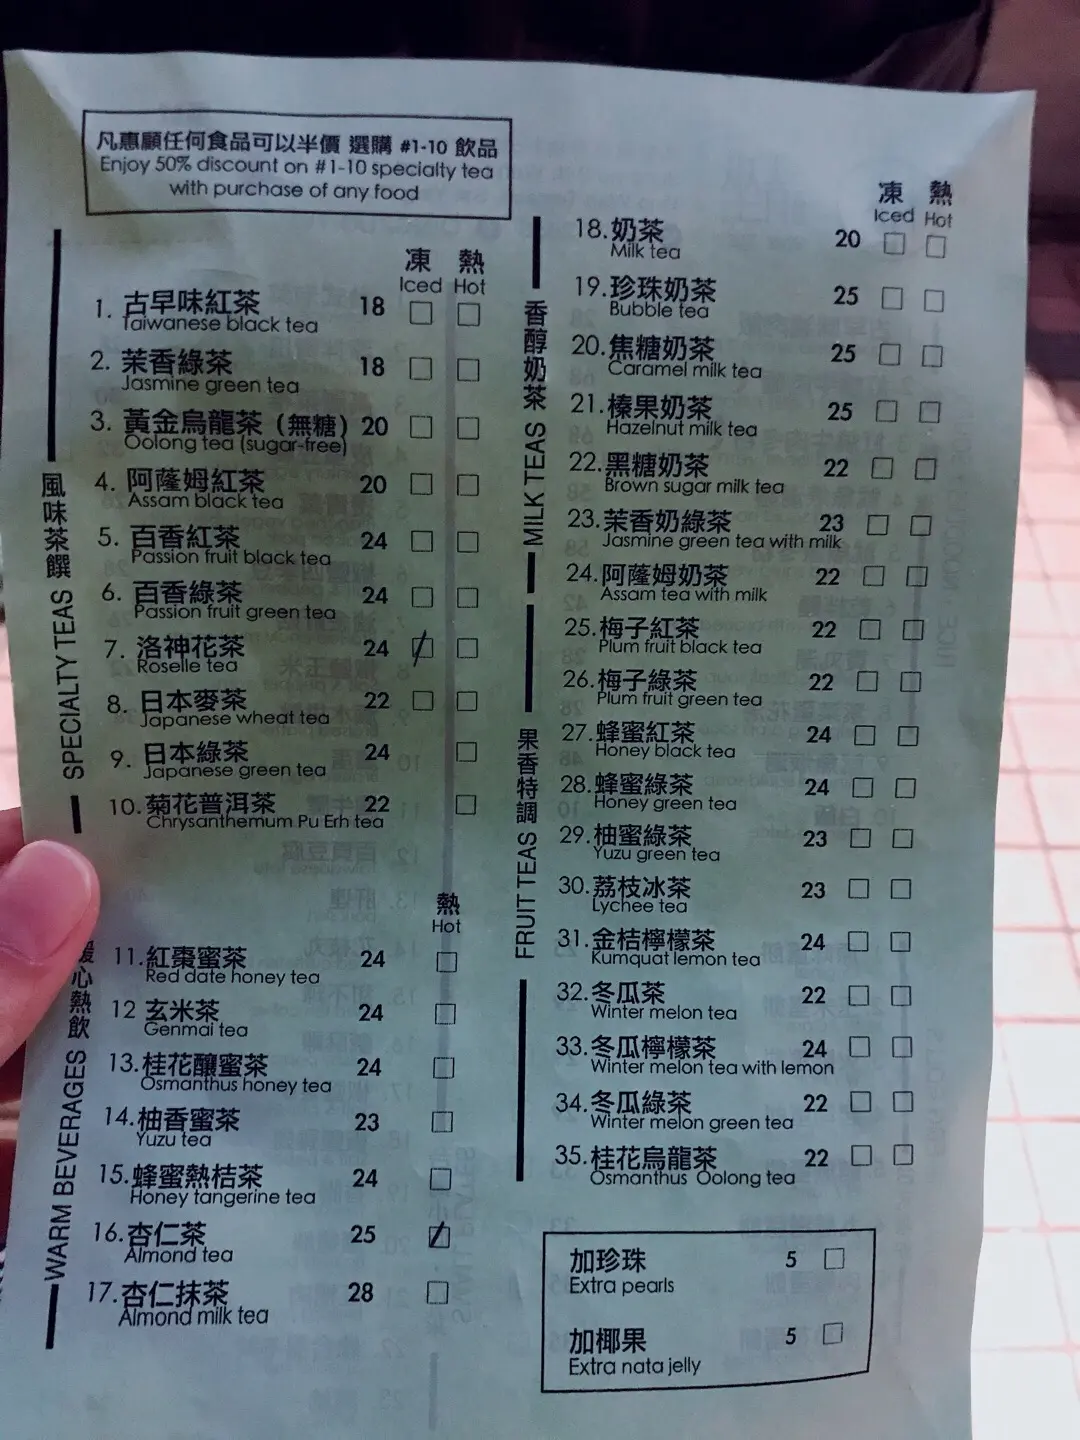 凡惠顧任何食品可以半價 選購 #1-10 飲品
Enjoy 50% discount on #1-10 specialty tea
with purchase of any food
凍 熱
Iced Hot
風味茶饌 SPECIALTY TEAS
1. 古早味紅茶 18
Taiwanese black tea
2. 茉香綠茶 18
Jasmine green tea
3. 黃金烏龍茶 (無糖) 20
Oolong tea (sugar-free)
4. 阿薩姆紅茶 20
Assam black tea
5. 百香紅茶 24
Passion fruit black tea
6. 百香綠茶 24
Passion fruit green tea
7. 洛神花茶 24
Roselle tea
8. 日本麥茶 22
Japanese wheat tea
9. 日本綠茶 24
Japanese green tea
10. 菊花普洱茶 22
Chrysanthemum Pu Erh tea
熱
Hot
心熱飲 WARM BEVERAGES
11. 紅棗蜜茶 24
Red date honey tea
12 玄米茶 24
Genmai tea
13. 桂花釀蜜茶 24
Osmanthus honey tea
14. 柚香蜜茶 23
Yuzu tea
15. 蜂蜜熱桔茶 24
Honey tangerine tea
16. 杏仁茶 25
Almond tea
17. 杏仁抹茶 28
Almond milk tea
凍 熱
Iced Hot
香醇奶茶 MILK TEAS
18. 奶茶 20
Milk tea
19. 珍珠奶茶 25
Bubble tea
20. 焦糖奶茶 25
Caramel milk tea
21. 榛果奶茶 25
Hazelnut milk tea
22. 黑糖奶茶 22
Brown sugar milk tea
23. 茉香奶綠茶 23
Jasmine green tea with milk
24. 阿薩姆奶茶 22
Assam tea with milk
果香特調 FRUIT TEAS
25. 梅子紅茶 22
Plum fruit black tea
26. 梅子綠茶 22
Plum fruit green tea
27. 蜂蜜紅茶 24
Honey black tea
28. 蜂蜜綠茶 24
Honey green tea
29. 柚蜜綠茶 23
Yuzu green tea
30. 荔枝冰茶 23
Lychee tea
31. 金桔檸檬茶 24
Kumquat lemon tea
32. 冬瓜茶 22
Winter melon tea
33. 冬瓜檸檬茶 24
Winter melon tea with lemon
34. 冬瓜綠茶 22
Winter melon green tea
35. 桂花烏龍茶 22
Osmanthus Oolong tea
加珍珠 5
Extra pearls
加椰果 5
Extra nata jelly